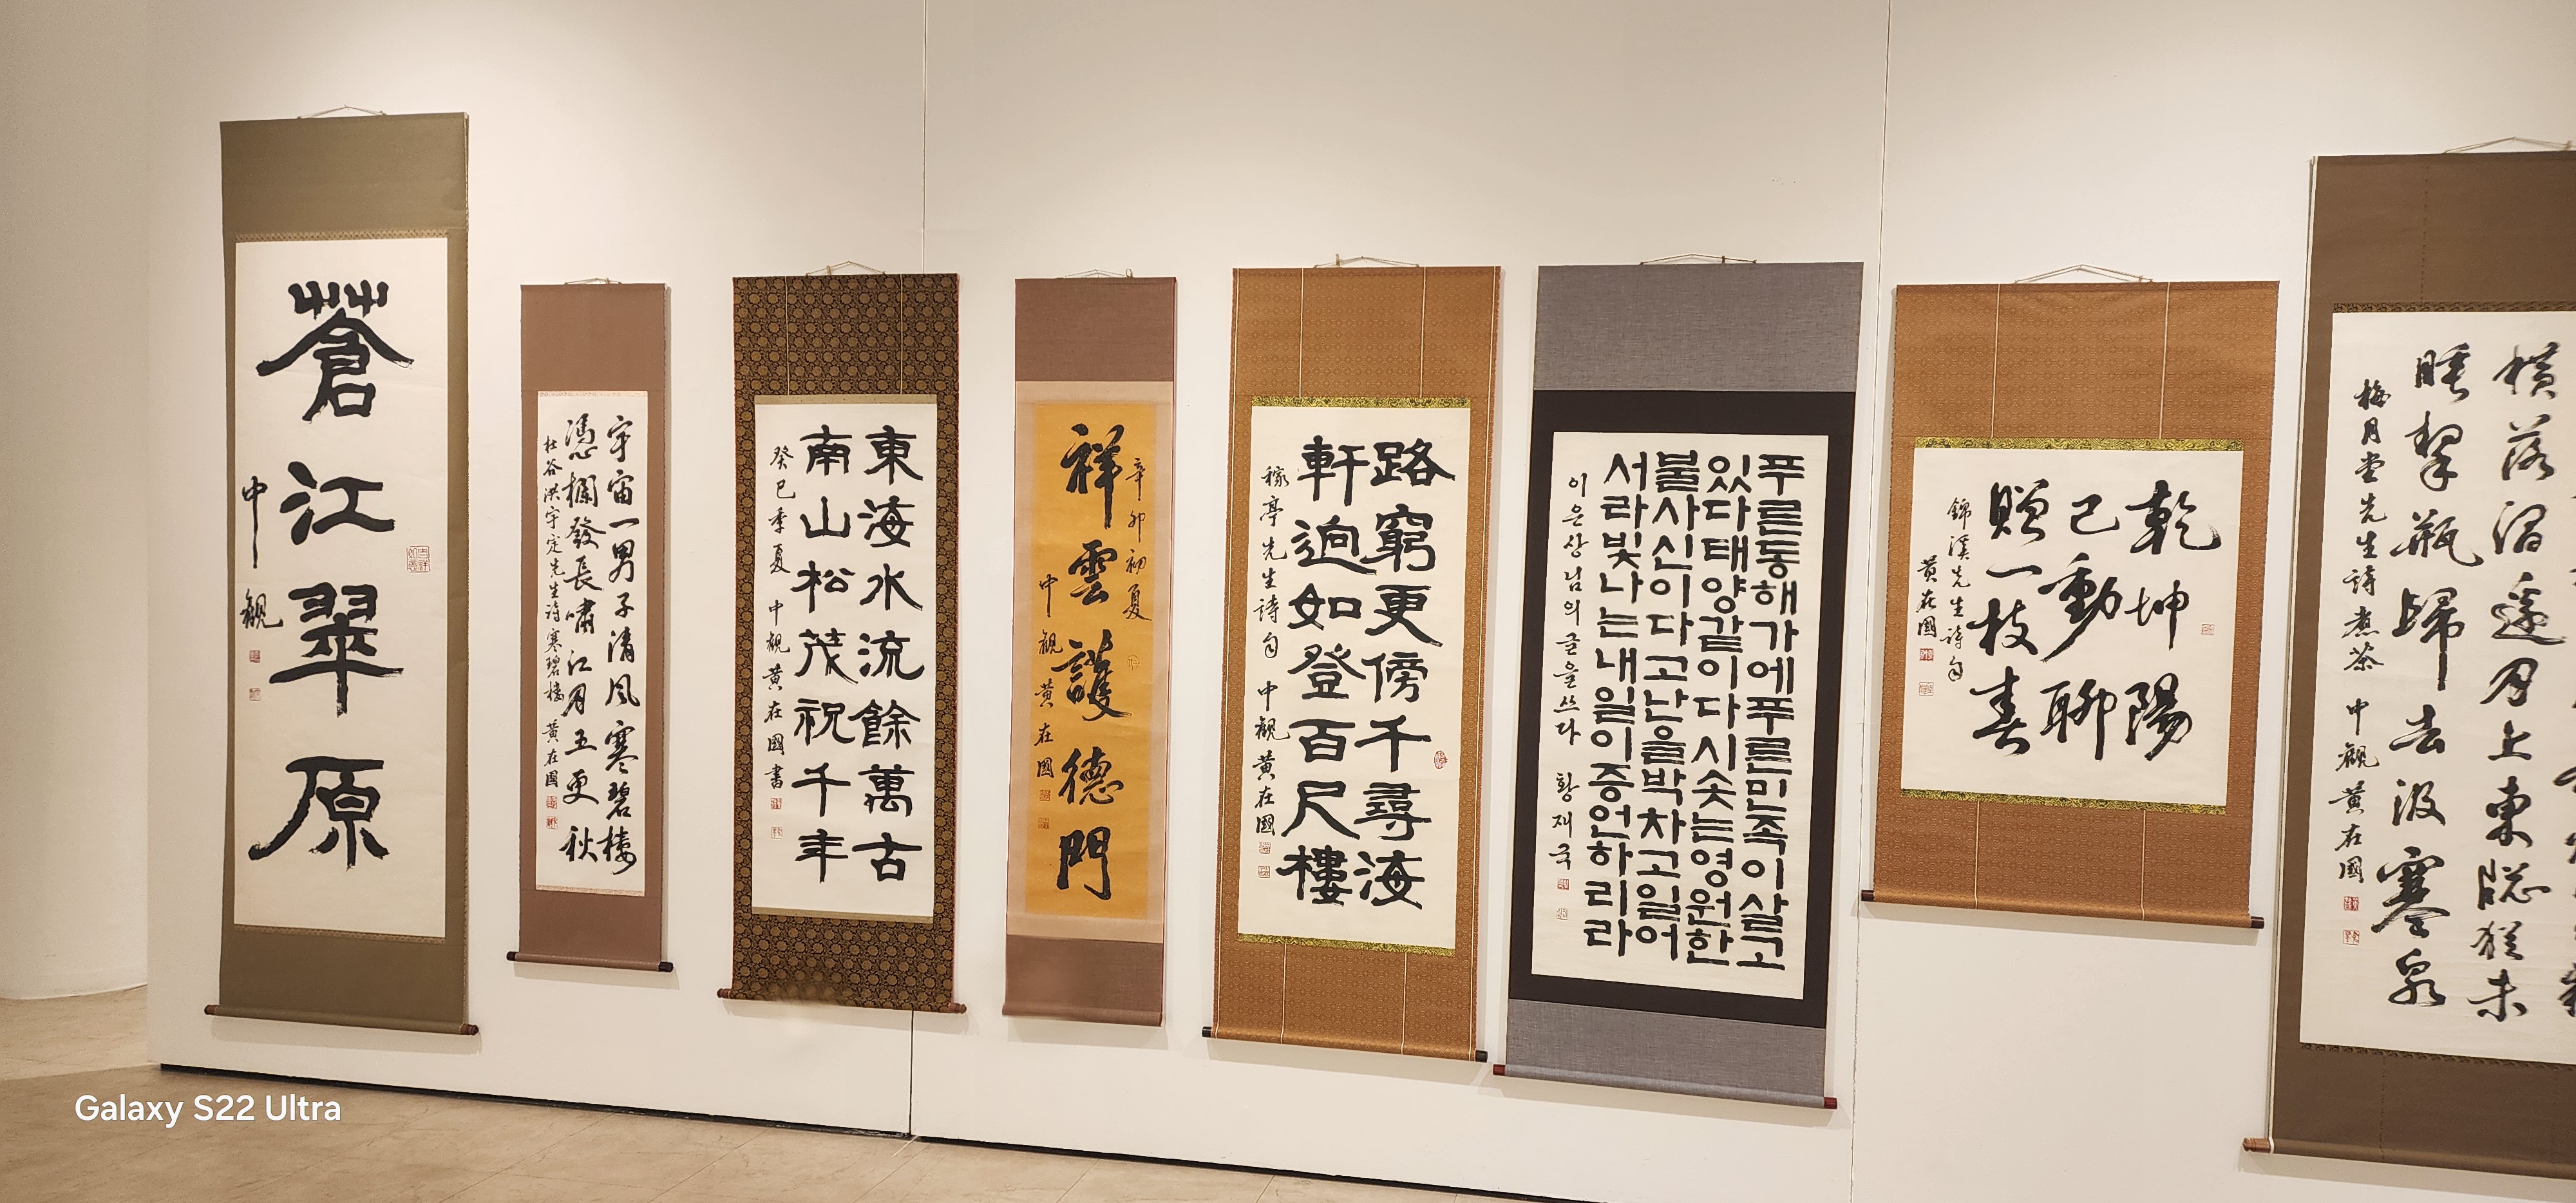 蒼江翠原
中觀
宇宙一男子淸風寒碧樓
憑欄發長嘯江月五更秋
杜谷洪宇定先生詩寒碧樓 黃在國
東海水流餘萬古
南山松茂祝千年
癸巳季夏 中觀 黃在國書
辛卯初夏
祥雲護德門
中觀 黃在國
路窮更傍千尋海
軒逈如登百尺樓
稼亭先生詩句 中觀 黃在國
푸른동해가에푸른민족이살고
있다태양같이다시솟는영원한
불사신이다고난을박차고일어
서라빛나는내일이증언하리라
이은상님의글을쓰다 황재국
乾坤陽
已動聊
贈一枝春
錦溪先生詩句
黃在國
橫落滔邊月上東聰猶未
睡挈甁歸去汲寒泉
梅月堂先生詩煮茶 中觀 黃在國
Galaxy S22 Ultra